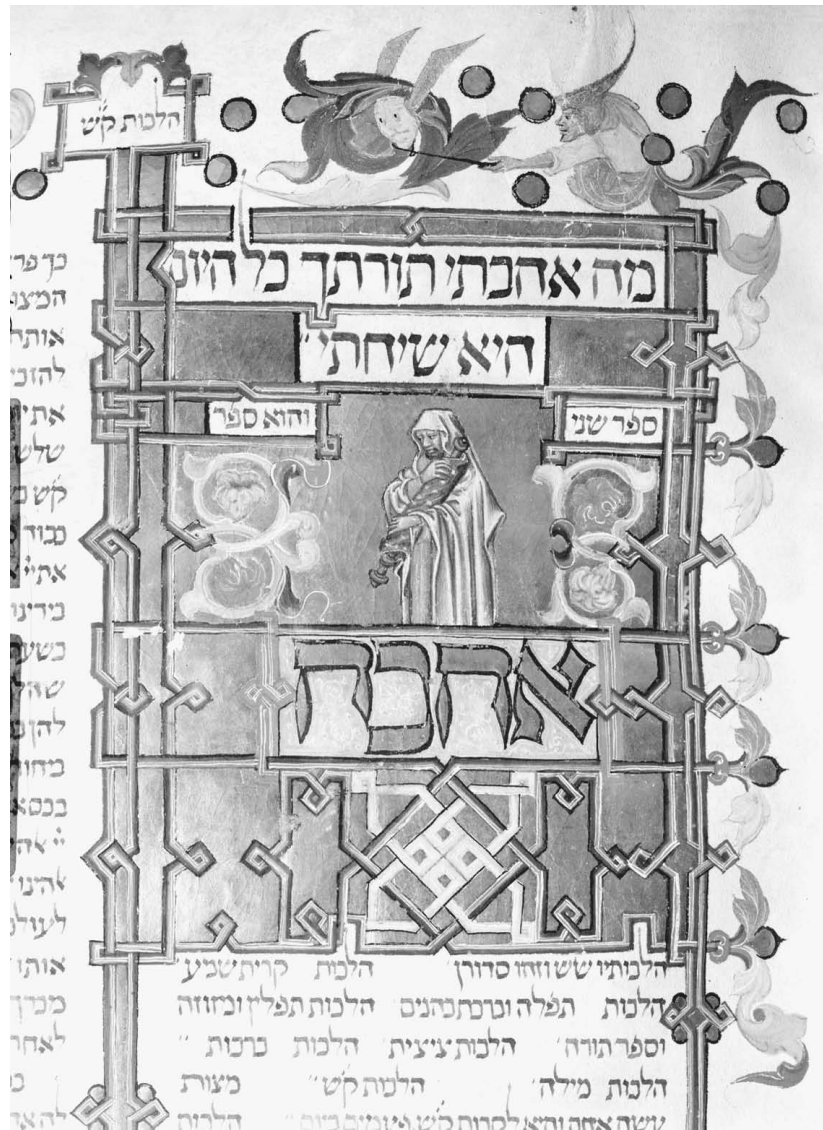 הלכות ק"ש
מה אהבתי תורתך כל היום
היא שיחתי
ספר שני והוא ספר
אהבה
הלכותיו שש וזהו סדורן הלכות קרית שמע
הלכות תפלה וברכת כהנים הלכות תפלין ומזוזה
וספר תורה הלכות ציצית הלכות ברכות
הלכות מילה הלכות ק"ש מצות
עשה אחת והיא לקרות ק"ש פעמים ביום הלכות